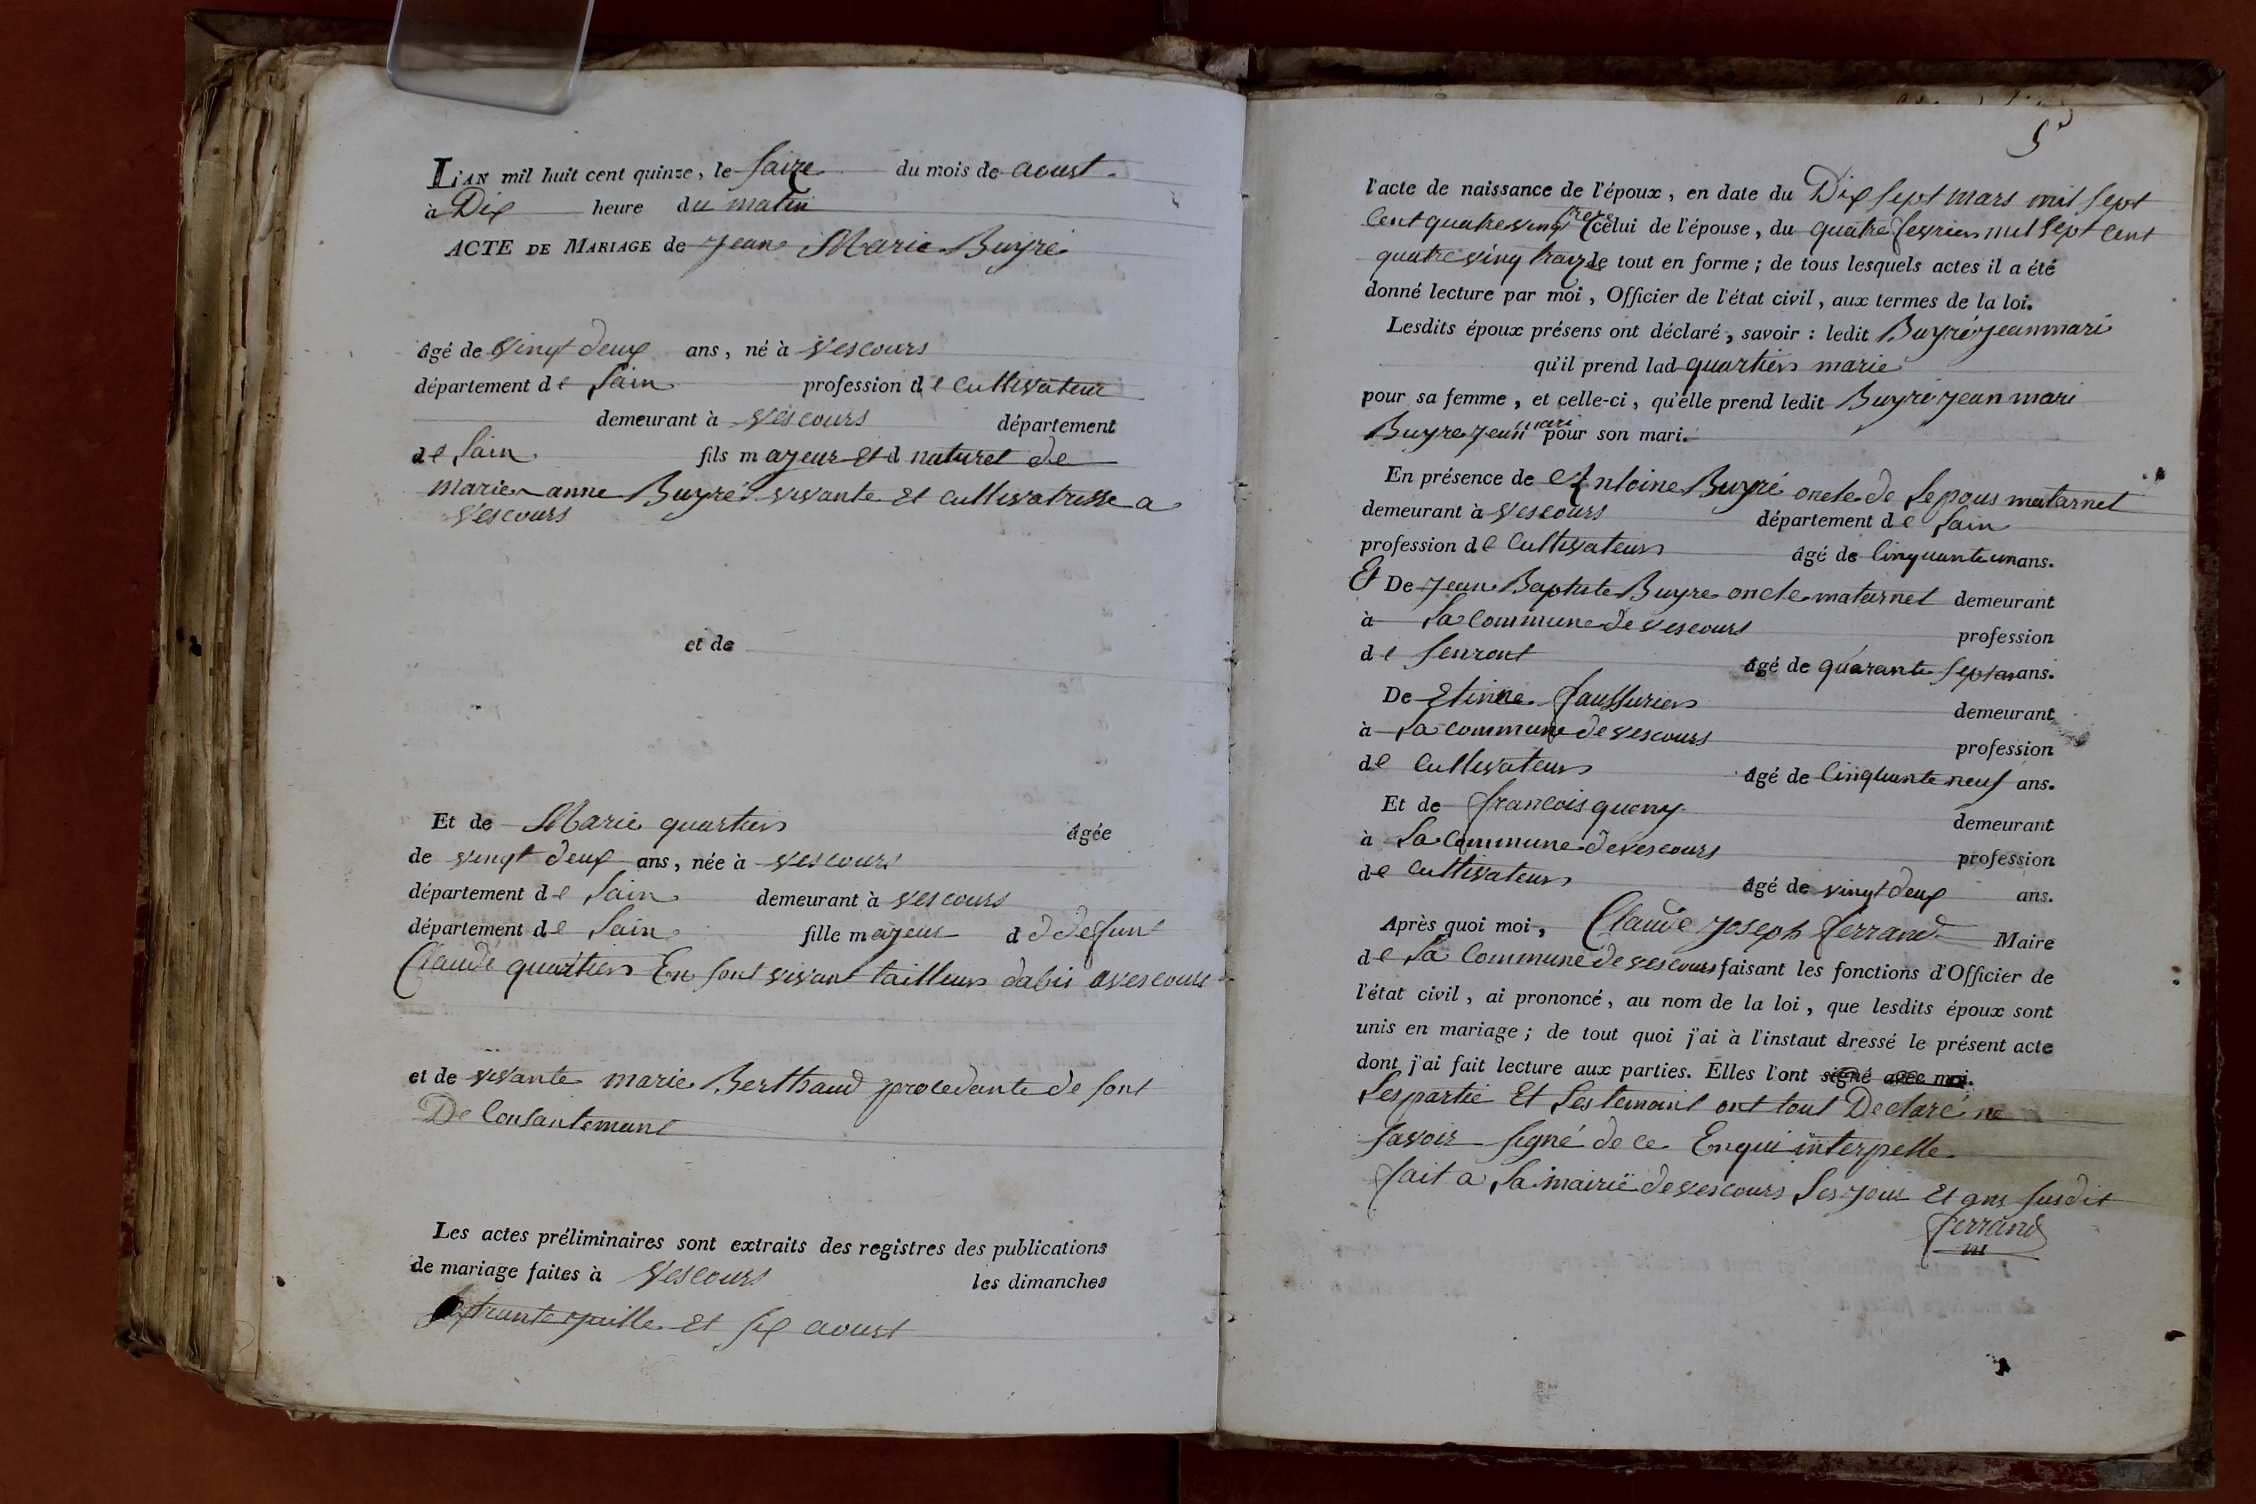 L'AN mil huit cent quinze, le saize du mois de aoust
à Dix heure du matin
ACTE DE MARIAGE de jean Marie Buyré
âgé de vingt deux ans, né à vescours
département de lain profession de cultivateur
demeurant à vescours département
de lain fils majeur et d naturel de
marie anne Buyré vivante et cultivatrisse a
vescours
et de
Et de Marie quartier âgée
de vingt deux ans, née à vescours
département de lain demeurant à vescours
département de lain fille majeur d deffunt
Claude quartier En sont vivant tailleur dabis a vescours
et de vivante marie Berthaud procedante de sont
De Consantemant
Les actes préliminaires sont extraits des registres des publications
de mariage faites à vescours les dimanches
trante juille et six aoust
5
l'acte de naissance de l'époux, en date du Dix sept mars mil sept
Cent quatre vingt treze celui de l'épouse, du quatre fevrier mil sept cent
quatre vingt trayze le tout en forme ; de tous lesquels actes il a été
donné lecture par moi, Officier de l'état civil, aux termes de la loi.
Lesdits époux présens ont déclaré, savoir : ledit Buyré jean mari
qu'il prend lad quartier marie
pour sa femme, et celle-ci, qu'elle prend ledit Buyré jean mari
Buyre jean mari pour son mari.
En présence de Antoine Buyré oncle de lepous maternel
demeurant à vescours département de lain
profession de Cultivateur âgé de Cinquante un ans.
Et De jean Baptiste Buyre oncle maternel demeurant
à la commune de vescours profession
de âgé de quarante sept ans.
De Etinne faussurier demeurant
à la commune de vescours profession
de Cultivateur âgé de Cinquante neuf ans.
Et de francois queny demeurant
à la Commune de vescours profession
de cultivateur âgé de vingt deux ans.
Après quoi moi, Claude joseph ferrand Maire
de la Commune de vescours faisant les fonctions d'Officier de
l'état civil, ai prononcé, au nom de la loi, que lesdits époux sont
unis en mariage ; de tout quoi j'ai à l'instaut dressé le présent acte
dont j'ai fait lecture aux parties. Elles l'ont signé avec moi.
Les partie Et Les temoint ont tout Declaré ne
savoir signé de ce Enqui interpelle
fait a la mairie de vescours les jour et ans susdit
ferrand
m